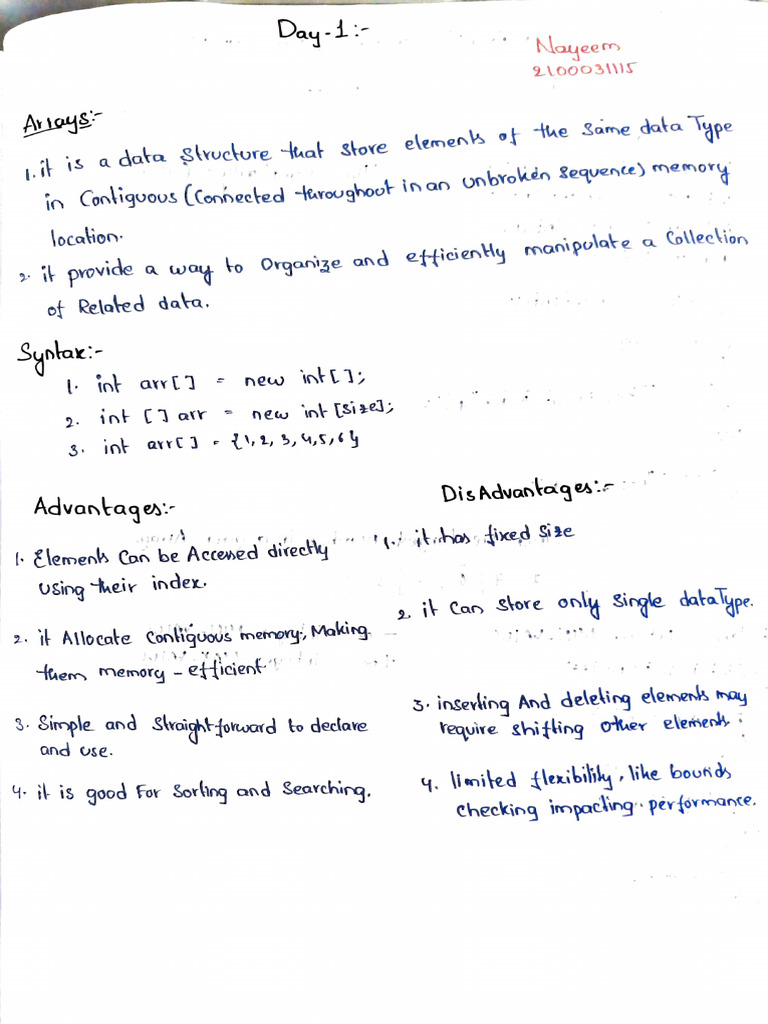 Day-1:-
Nayeem
2100031115
Arrays:-
1. it is a data structure that store elements of the same data Type
in Contiguous (Connected throughout in an unbroken sequence) memory
location.
2. it provide a way to Organize and efficiently manipulate a Collection
of Related data.
Syntax:-
1. int arr[] = new int[];
2. int [] arr = new int [size];
3. int arr[] = {1,2,3,4,5,6}
Advantages:-
1. Elements Can be Accessed directly
using their index.
2. it Allocate Contiguous memory, Making
them memory-efficient
3. Simple and Straightforward to declare
and use.
4. it is good For Sorting and Searching.
DisAdvantages:-
1. it has fixed Size
2. it Can Store only Single dataType.
3. inserting And deleting elements may
require shifting other elements.
4. limited flexibility, like bounds
checking impacting performance.